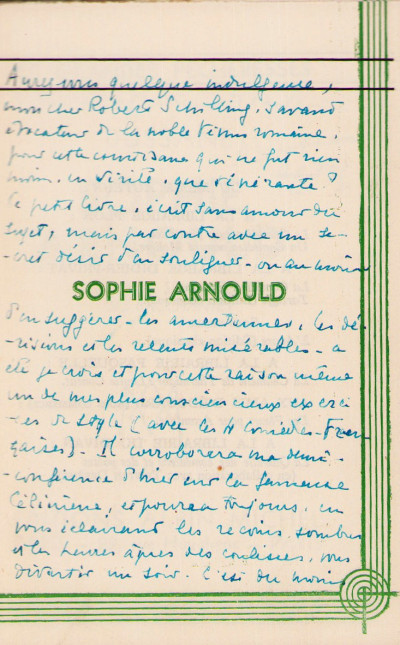 Aurez vous quelque indulgence,
mon cher Robert Schilling, savant
évocateur de la noble Vénus romaine,
pour cette courtisane qui ne fut rien
moins, en vérité, que vénérante?
Ce petit livre, écrit sans amour du
sujet, mais par contre avec un se-
-cret désir d'en souligner - ou au moins
SOPHIE ARNOULD
d'en suggérer - les amertumes, les dé-
-risions et les relents misérables - a
été je crois et pour cette raison même
un de mes plus consciencieux exerci-
-ces de style (avec les 4 Comédies-Fran-
çaises). Il corroborera ma demi-
-conférence d'hier sur la fameuse
Célimène, et pourra toujours, en
vous éclairant les recoins sombres
et les heures âpres des coulisses, vous
divertir un soir. C'est du moins